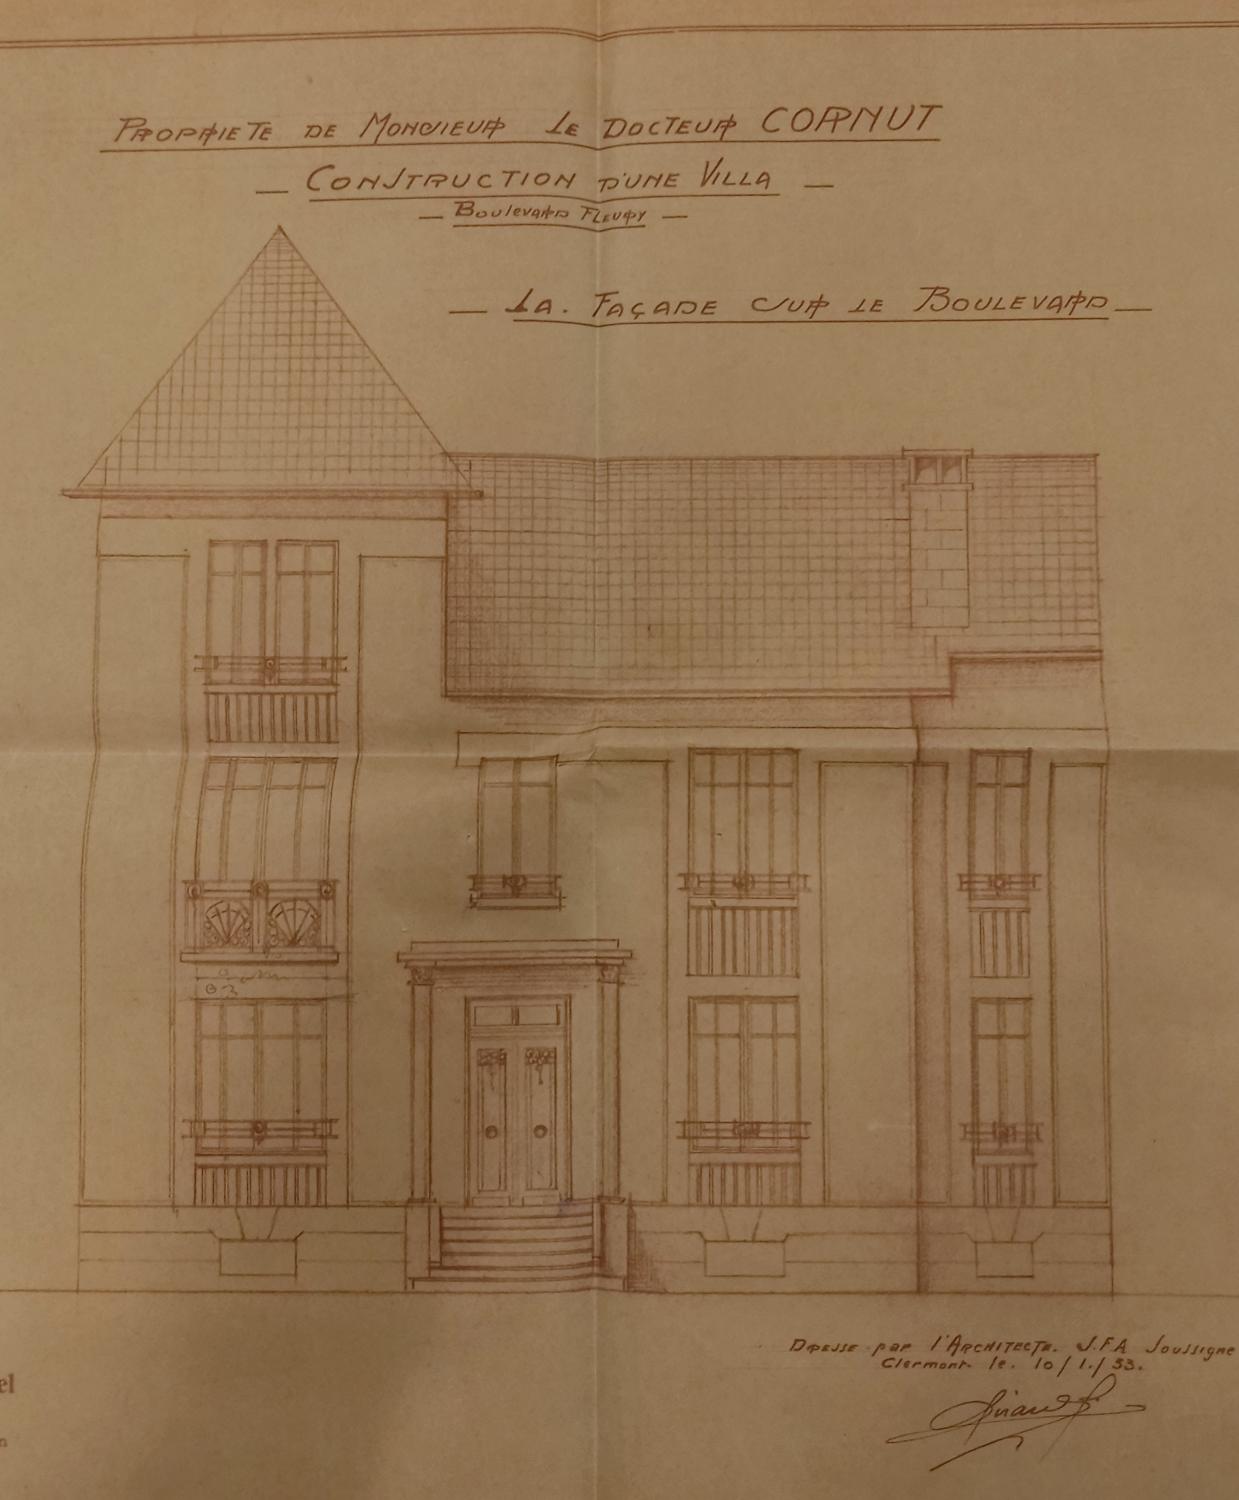 PROPRIETE DE MONSIEUR LE DOCTEUR CORNUT
— CONSTRUCTION D'UNE VILLA —
— BOULEVARD FLEURY —
— LA. FAÇADE SUR LE BOULEVARD —
DRESSE par l'ARCHITECTE. J.F.A Joussigne
Clermont le. 10/1./33.
el
n